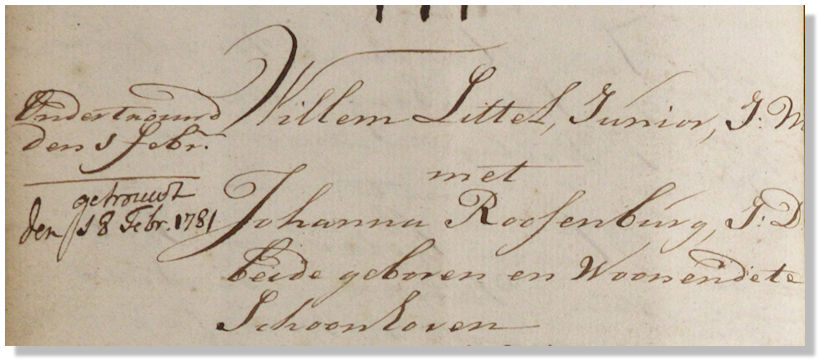 Ondertrouwd
den 1 febr.
getrouwt
den 18 Febr. 1781
Willem Littel, Junior, J: M
met
Johanna Roosenburg, J: D
beide geboren en Woonende te
Schoonhoven